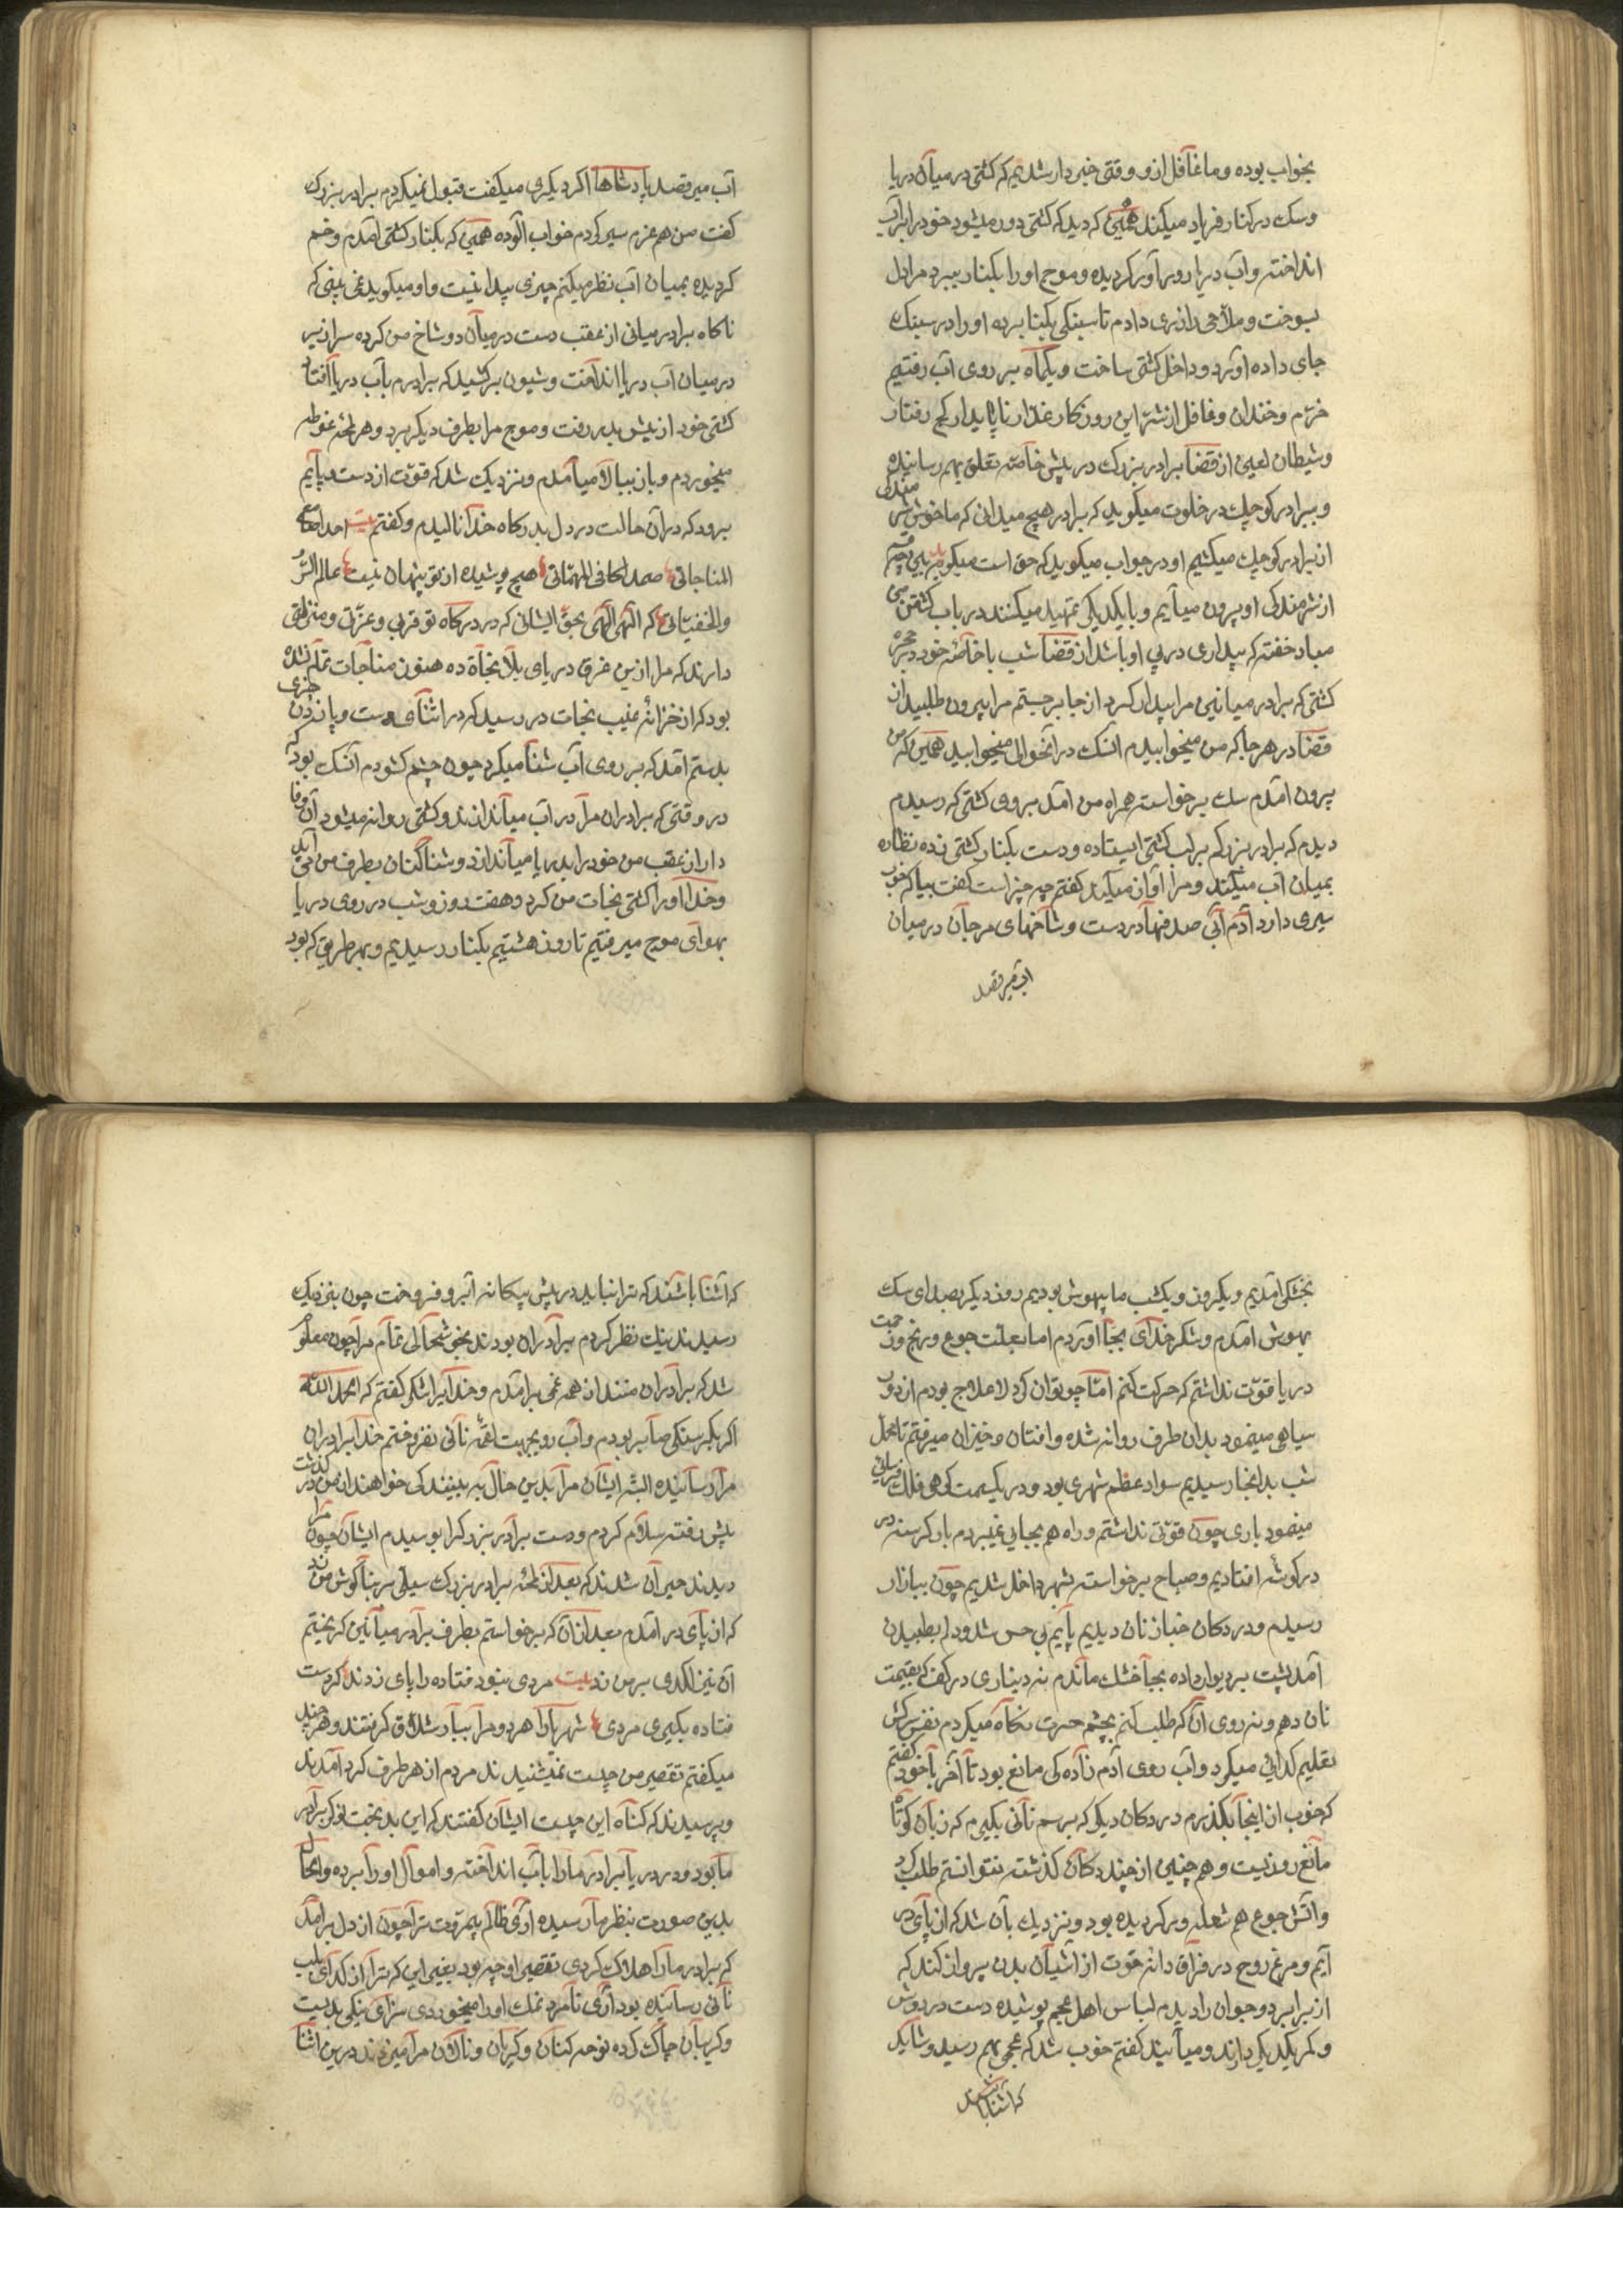 بخواب بوده و ما غافل ازو وقتی خبردار شدیم که کشتی در میان دریا
و سک در کنار فریاد میکند همین که دید که کشتی دور میشود خود را برآب
انداخته و آب دریا رو برآور کردیده و موج او را بکنار میبرد مرا دل
بسوخت و ملاحی را زری دادم تا سینکی بکنار برده او را در سینک
جای داده آورد و داخل کشتی ساخت و یکماه بر روی آب رفتیم
خرم و خندان و غافل از شر این روزکار غدار ناپایدار کج رفتار
و شیطان لعین از قضا برادر بزرک در پیش خاصه تعلق بهم رسانیده
و ببرادر کوچک در خلوت میکوید که برادر هیچ میدانی که ما خوش شرمندکی
از برادر کوچک میکشیم او در جواب میکوید که حق است میکوید بیی وجه
از شرمندکی او بیرون میآیم و با یکدیکر تمهید میکنند در باب کشتن من
مبادا خفته که بیداری در پی او باشد از قضا شب با خاصه خود در حجره
کشتی که برادر میانین مرا بیدار کرد از جا برجستم مرا بیرون طلبید از
قضا در هر جا که من میخوابیدم آن سک در آنحوالی میخوابید همین که من
بیرون آمدم سک برخواست همراه من آمد بروی کشتی که رسیدم
دیدم که برادر بزرکم بر لب کشتی ایستاده و دست بکنار کشتی زده نظاره
بمیان آب میکند و مرا آواز میکند کفتم چه چیز است کفت بیا که خوب
سیری دارد آدم آبی صدفها در دست و شاخهای مرجان در میان
آب میرقصد
آب میرقصد پادشاها اکر دیکری میکفت قبول نمیکردم برادر بزرک
کفت من هم عزم سیر کردم خواب آلوده همین که بکنار کشتی آمدم و خم
کردیده بمیان آب نظر میکنم چیزی پیدا نیست و او میکوید نمی بینی که
ناکاه برادر میانی از عقب دست در میان دو شاخ من کرده سرازیر
در میان آب دریا انداخت و شیون برکشید که برادرم بآب دریا افتاد
کشتی خود از پیش بدر رفت و موج مرا بطرف دیکر برد و هر لحظه غوطه
میخوردم و باز ببالا میآمدم و نزدیک شد که قوت از دست و پایم
برود که در آن حالت در دل بدرکاه خدا نالیدم و کفتم بیت احدا سامع
المناجاتی صمدا کافی المهماتی هیچ پوشیده از تو پنهان نیست عالم السر
والخفیاتی که الهی الهی بحق ایشانی که در درکاه تو قربی و عزتی و منزلتی
دارند که مرا ازین غرق دریای بلا نجاة ده هنوز مناجات تمام نشده
بود که از خزانه غیب نجات در رسید که در اثنای دست و پا زدن چیزی
بدستم آمد که بر روی آب شنا میکرد چون چشم کشودم آن سک بود که
در وقتی که برادران مرا در آب میاندازند و کشتی روانه میشود آن وفا
دار از عقب من خود را بدریا میاندازد و شنا کنان بطرف من می آید
و خدا او را کشتی نجات من کرد و هفت روز و شب در روی دریا
بهوای موج میرفتیم تا روز هشتیم بکنار رسیدیم و بهر طریق که بود
بخشکی آمدیم و یکروز و یکشب ما بیهوش بودیم روز دیکر بصدای سک
بهوش آمدم و شکر خدای بجا آوردم اما بعلت جوع و رنج و زحمت
دریا قوت نداشتم که حرکت کنم امّا چتوان کرد لاعلاج بودم از دور
سیاهی مینمود بدان طرف روانه شده و افتان و خیزان میرفتم تا محل
شب بدانجا رسیدیم سواد عظم شهری بود و در یکسمت کوهی فلک فرسائی
مینمود باری چون قوتی نداشتم و راه هم بجایی نمیبردم باز کرسنه در
در کوشه افتادیم و صباح برخواسته بشهر داخل شدیم چون ببازار
رسیدم و در دکان خباز نان دیدیم پایم بی حس شد و دل بطپیدن
آمد پشت بر دیوار داده بجا خشک ماندم نه دیناری در کف که بقیمت
نان دهم و نه روی آن که طلب کنم بچشم حسرت نکاه میکردم نفس سرکش
تعلیم کدائی میکرد و آب روی آدم زاده کی مانع بود تا آخر با خود کفتم
که خوب از اینجا بکذرم در دکان دیکر که برسم نانی بکیرم که زبان کوتاه
مانع روزیست و هم چنین از چند دکان کذشته نتوانستم طلب کرد
و آتش جوع هم شعله ور کردیده بود و نزدیک بآن شد که از پای در
آیم و مرغ روح در فراق دانه قوت از آشیان بدن پرواز کند که
از برابر دو جوان را دیدم لباس اهل عجم پوشیده دست در دوش
و کمر یکدیکر دارند و میآیند کفتم خوب شد که عجمی بهم رسید و شاید
که آشنا باشند
که آشنا باشند که ترا نباید در پیش بیکانه آبرو فروخت چون بنزدیک
رسیدند نیک نظر کردم برادران بودند بخوشحالی تمام مرا چون معلوم
شد که برادران منند از همه غمی برآمدم و خدایرا شکر کفتم که الحمدلله
اکر بکرسنکی صابر بودم و آب رو بجهت لقمه نانی نفروختم خدا برادران
مرا رسانیده البته ایشان مرا بدین حال به بینند کی خواهند از من در کذشت
پیش رفته سلام کردم و دست برادر بزرک را بوسیدم ایشان چون مرا
دیدند حیران شدند که بعد از لحظه برادر بزرک سیلی بر بناکوش من زد
که از پای در آمدم بعد از آن که برخواستم بطرف برادر میانین کریختم
آن نیز لکدی بر من زد بیت مردی نبود فتاده را پای زدن کر دست
فتاده بکیری مردی شهریارا هر دو مرا ببار شلاق کرفتند و هر چند
میکفتم تقصیر من چیست نمیشنیدند مردم از هر طرف کرد آمدند
و پرسیدند که کناه این چیست ایشان کفتند که این بدبخت نوکر برادر
ما بود و در دریا برادر ما را بآب انداخته و اموال او را برده و الحال
بدین صورت بنظر ما رسیده ای ظالم بیمروت ترا چون از دل برآمد
که برادر ما را هلاک کردی تقصیر او چه بود بغیر این که ترا از کدای بلب
نانی رسانیده بود آری نامرد نمک او را میخوردی سزای نیکی بدیست
و کریبان چاک کرده نوحه کنان و کریان و نالان مرا میزدند درین اثنا